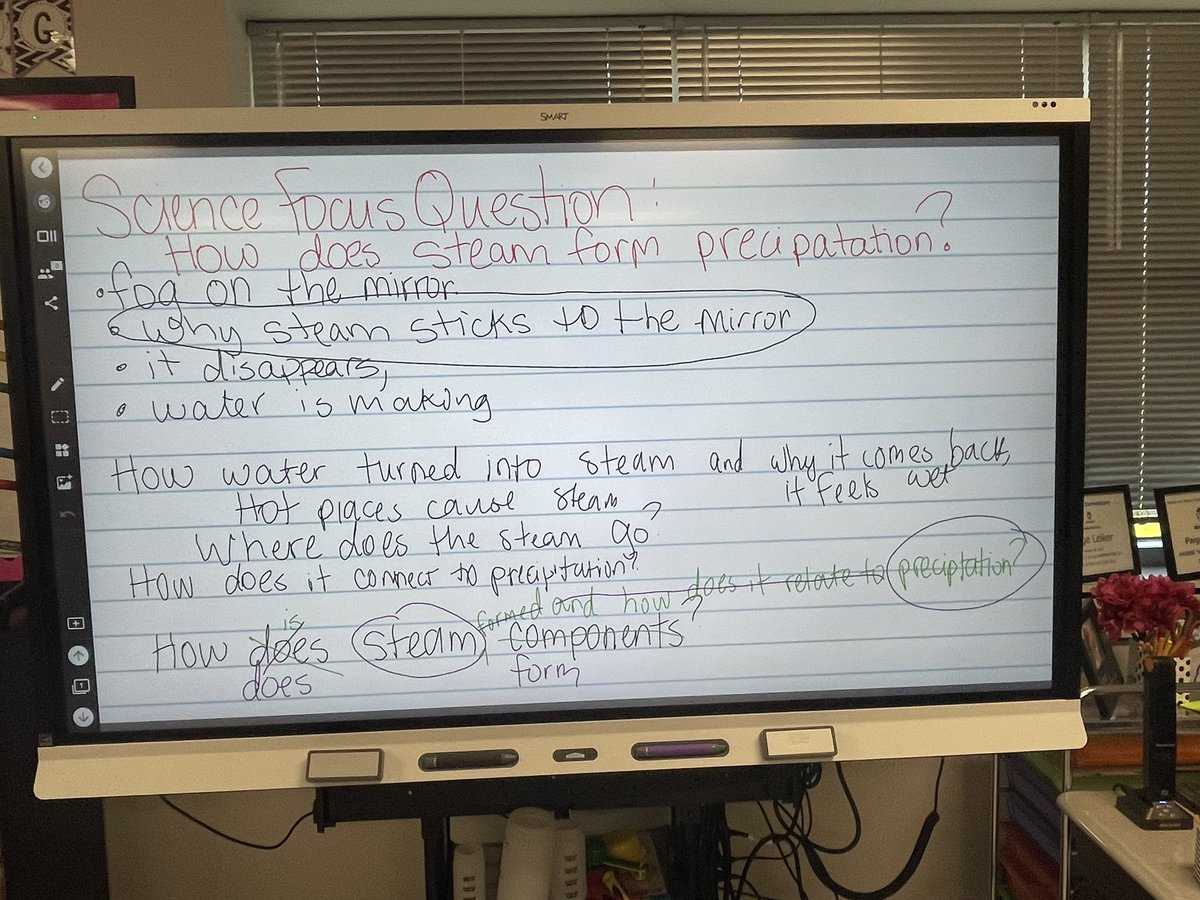 G
SMART
Science Focus Question:
How does steam form precipatation?
• fog on the mirror
• why steam sticks to the mirror
• it disappears,
• water is making
How water turned into steam and why it comes back,
it feels wet
Hot places cause steam
Where does the steam go?
How does it connect to precipitation?
formed and how does it relate to preciptation?
is
How does steam components?
does form